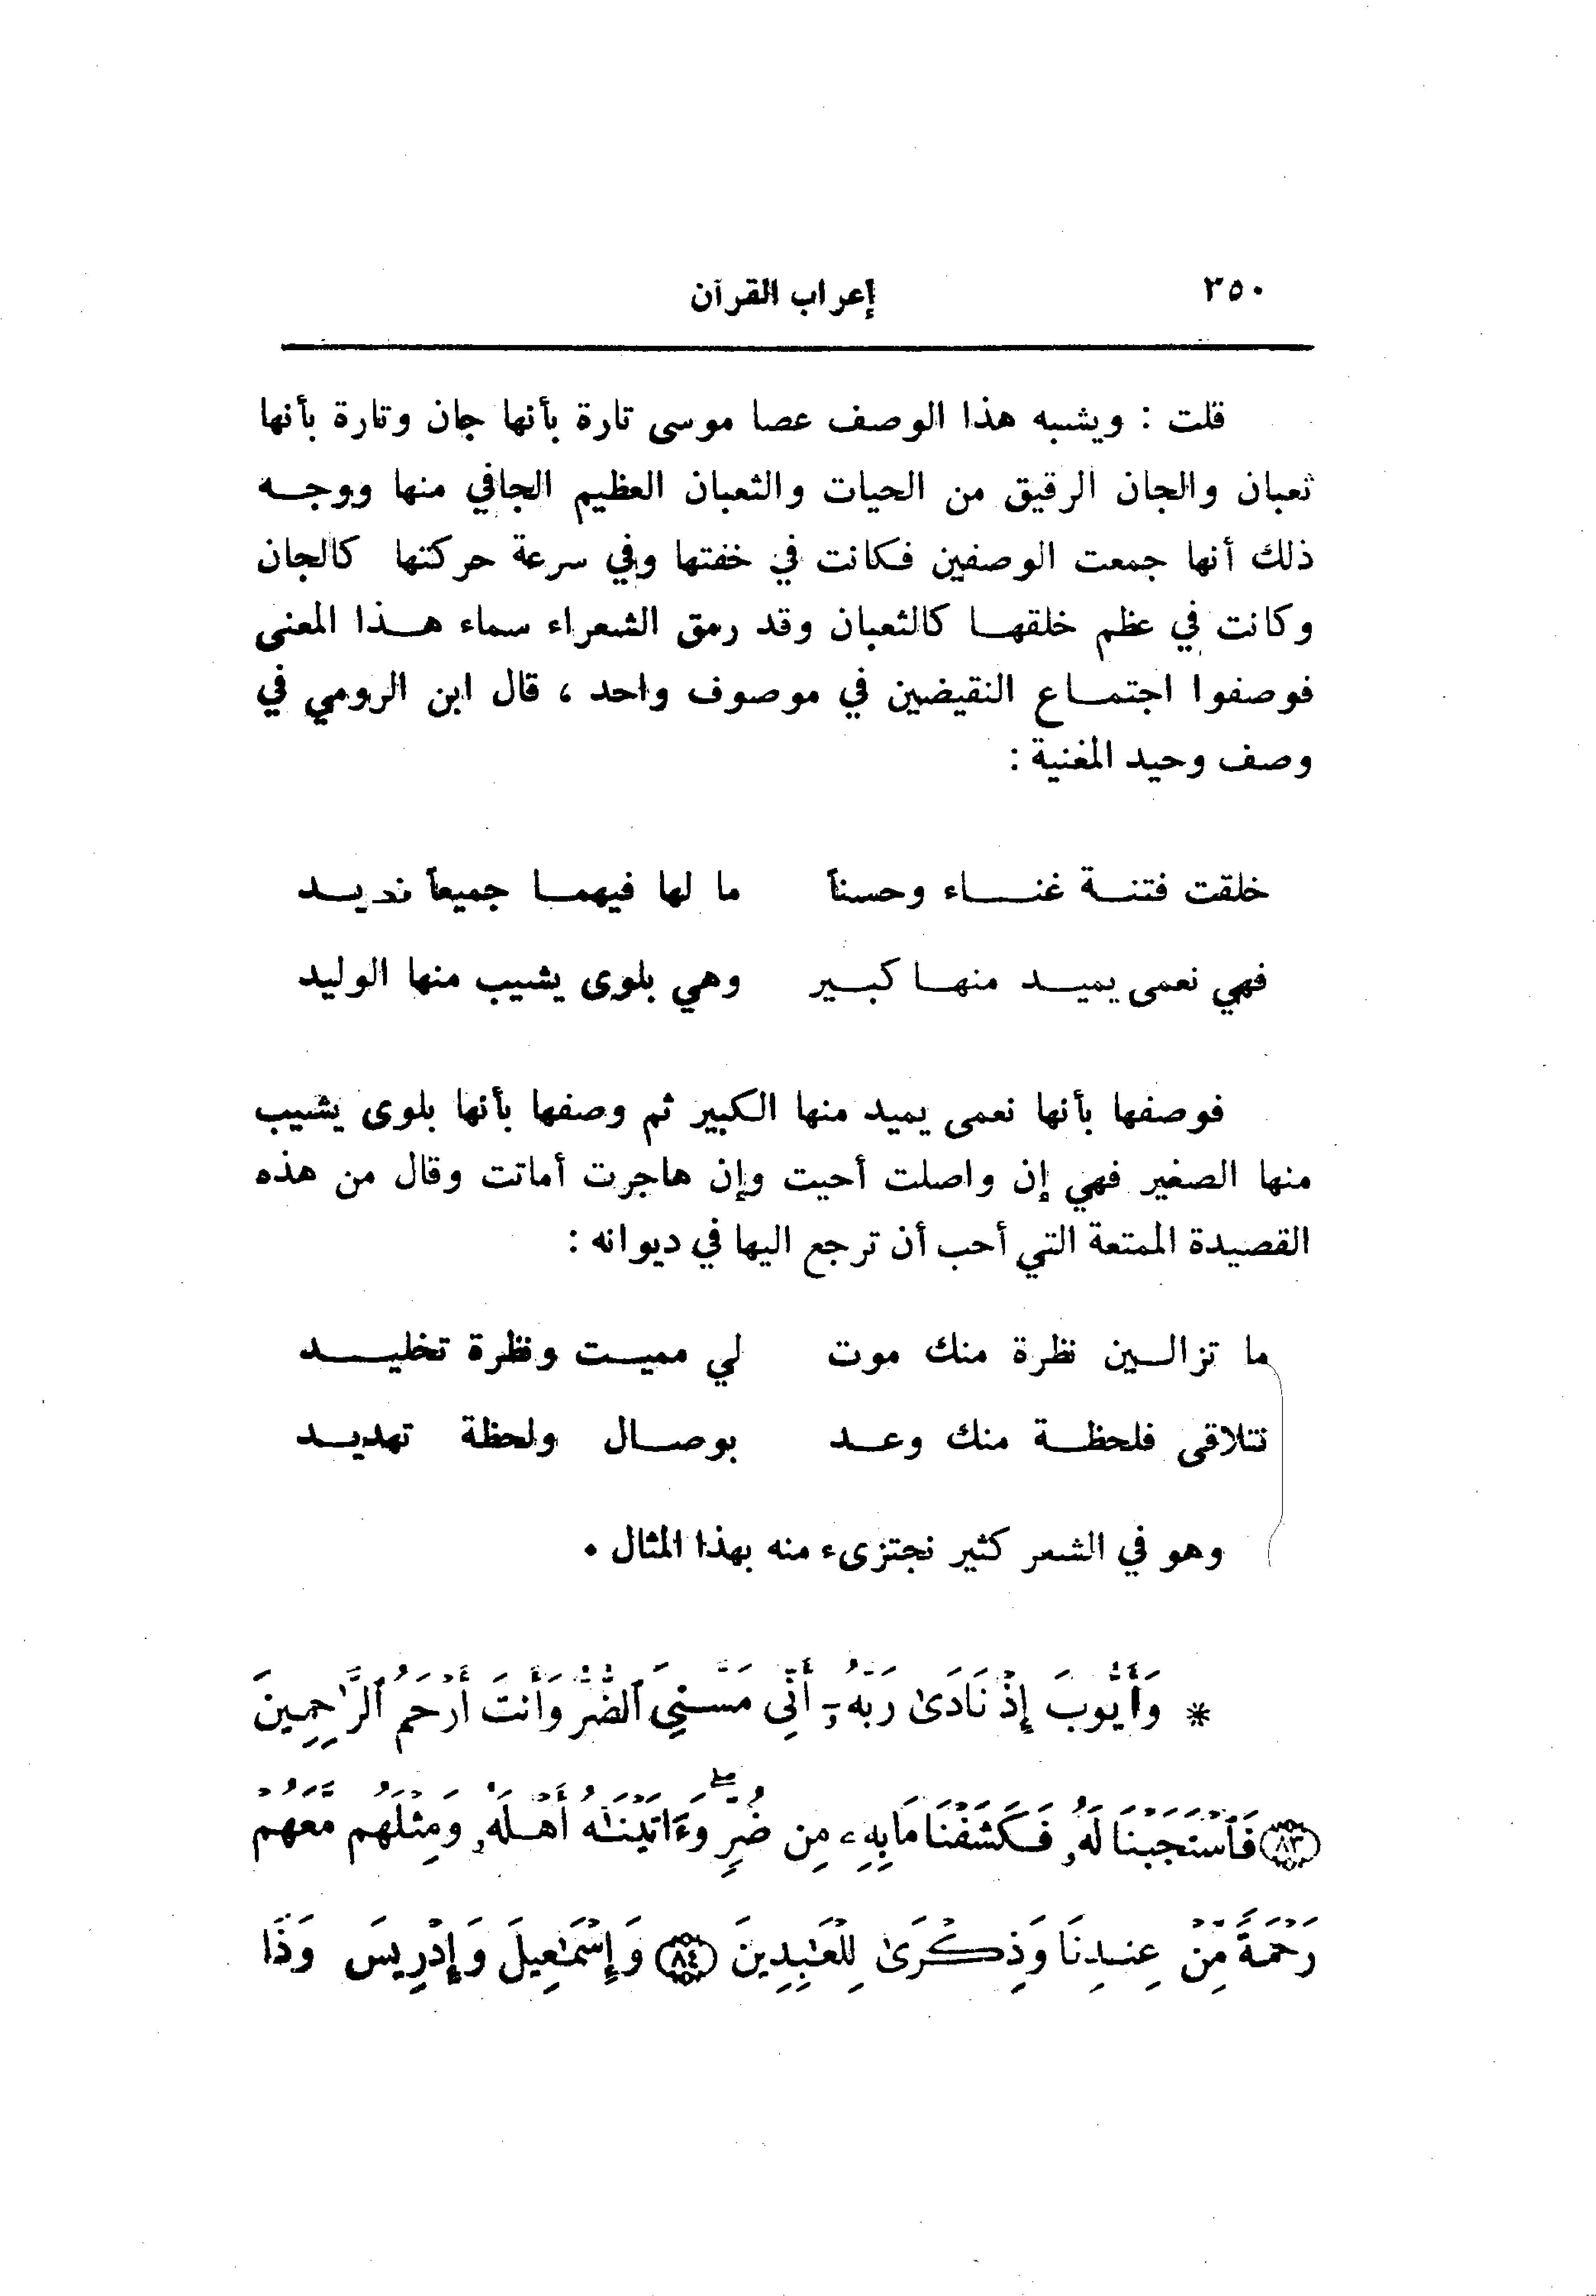 ٣٥٠ إعراب القرآن
قلت : ويشبه هذا الوصف عصا موسى تارة بأنها جان وتارة بأنها
ثعبان والجان الرقيق من الحيات والثعبان العظيم الجافي منها ووجه
ذلك أنها جمعت الوصفين فكانت في خفتها وفي سرعة حركتها كالجان
وكانت في عظم خلقها كالثعبان وقد رمق الشعراء سماء هذا المعنى
فوصفوا اجتماع النقيضين في موصوف واحد ، قال ابن الرومي في
وصف وحيد المغنية :
خلقت فتنة غناء وحسناً ما لها فيهما جميعاً نديد
فهي نعمى يميد منها كبير وهي بلوى يشيب منها الوليد
فوصفها بأنها نعمى يميد منها الكبير ثم وصفها بأنها بلوى يشيب
منها الصغير فهي إن واصلت أحيت وإن هاجرت أماتت وقال من هذه
القصيدة الممتعة التي أحب أن ترجع اليها في ديوانه :
ما تزالين نظرة منك موت لي مميت ونظرة تخليد
تتلاقى فلحظة منك وعد بوصال ولحظة تهديد
وهو في الشعر كثير نجتزىء منه بهذا المثال .
* وَأَيُّوبَ إِذْ نَادَىٰ رَبَّهُۥٓ أَنِّى مَسَّنِىَ ٱلضُّرُّ وَأَنتَ أَرْحَمُ ٱلرَّٰحِمِينَ
﴿٨٣﴾ فَٱسْتَجَبْنَا لَهُۥ فَكَشَفْنَا مَا بِهِۦ مِن ضُرٍّۖ وَءَاتَيْنَٰهُ أَهْلَهُۥ وَمِثْلَهُم مَّعَهُمْ
رَحْمَةً مِّنْ عِندِنَا وَذِكْرَىٰ لِلْعَٰبِدِينَ ﴿٨٤﴾ وَإِسْمَٰعِيلَ وَإِدْرِيسَ وَذَا